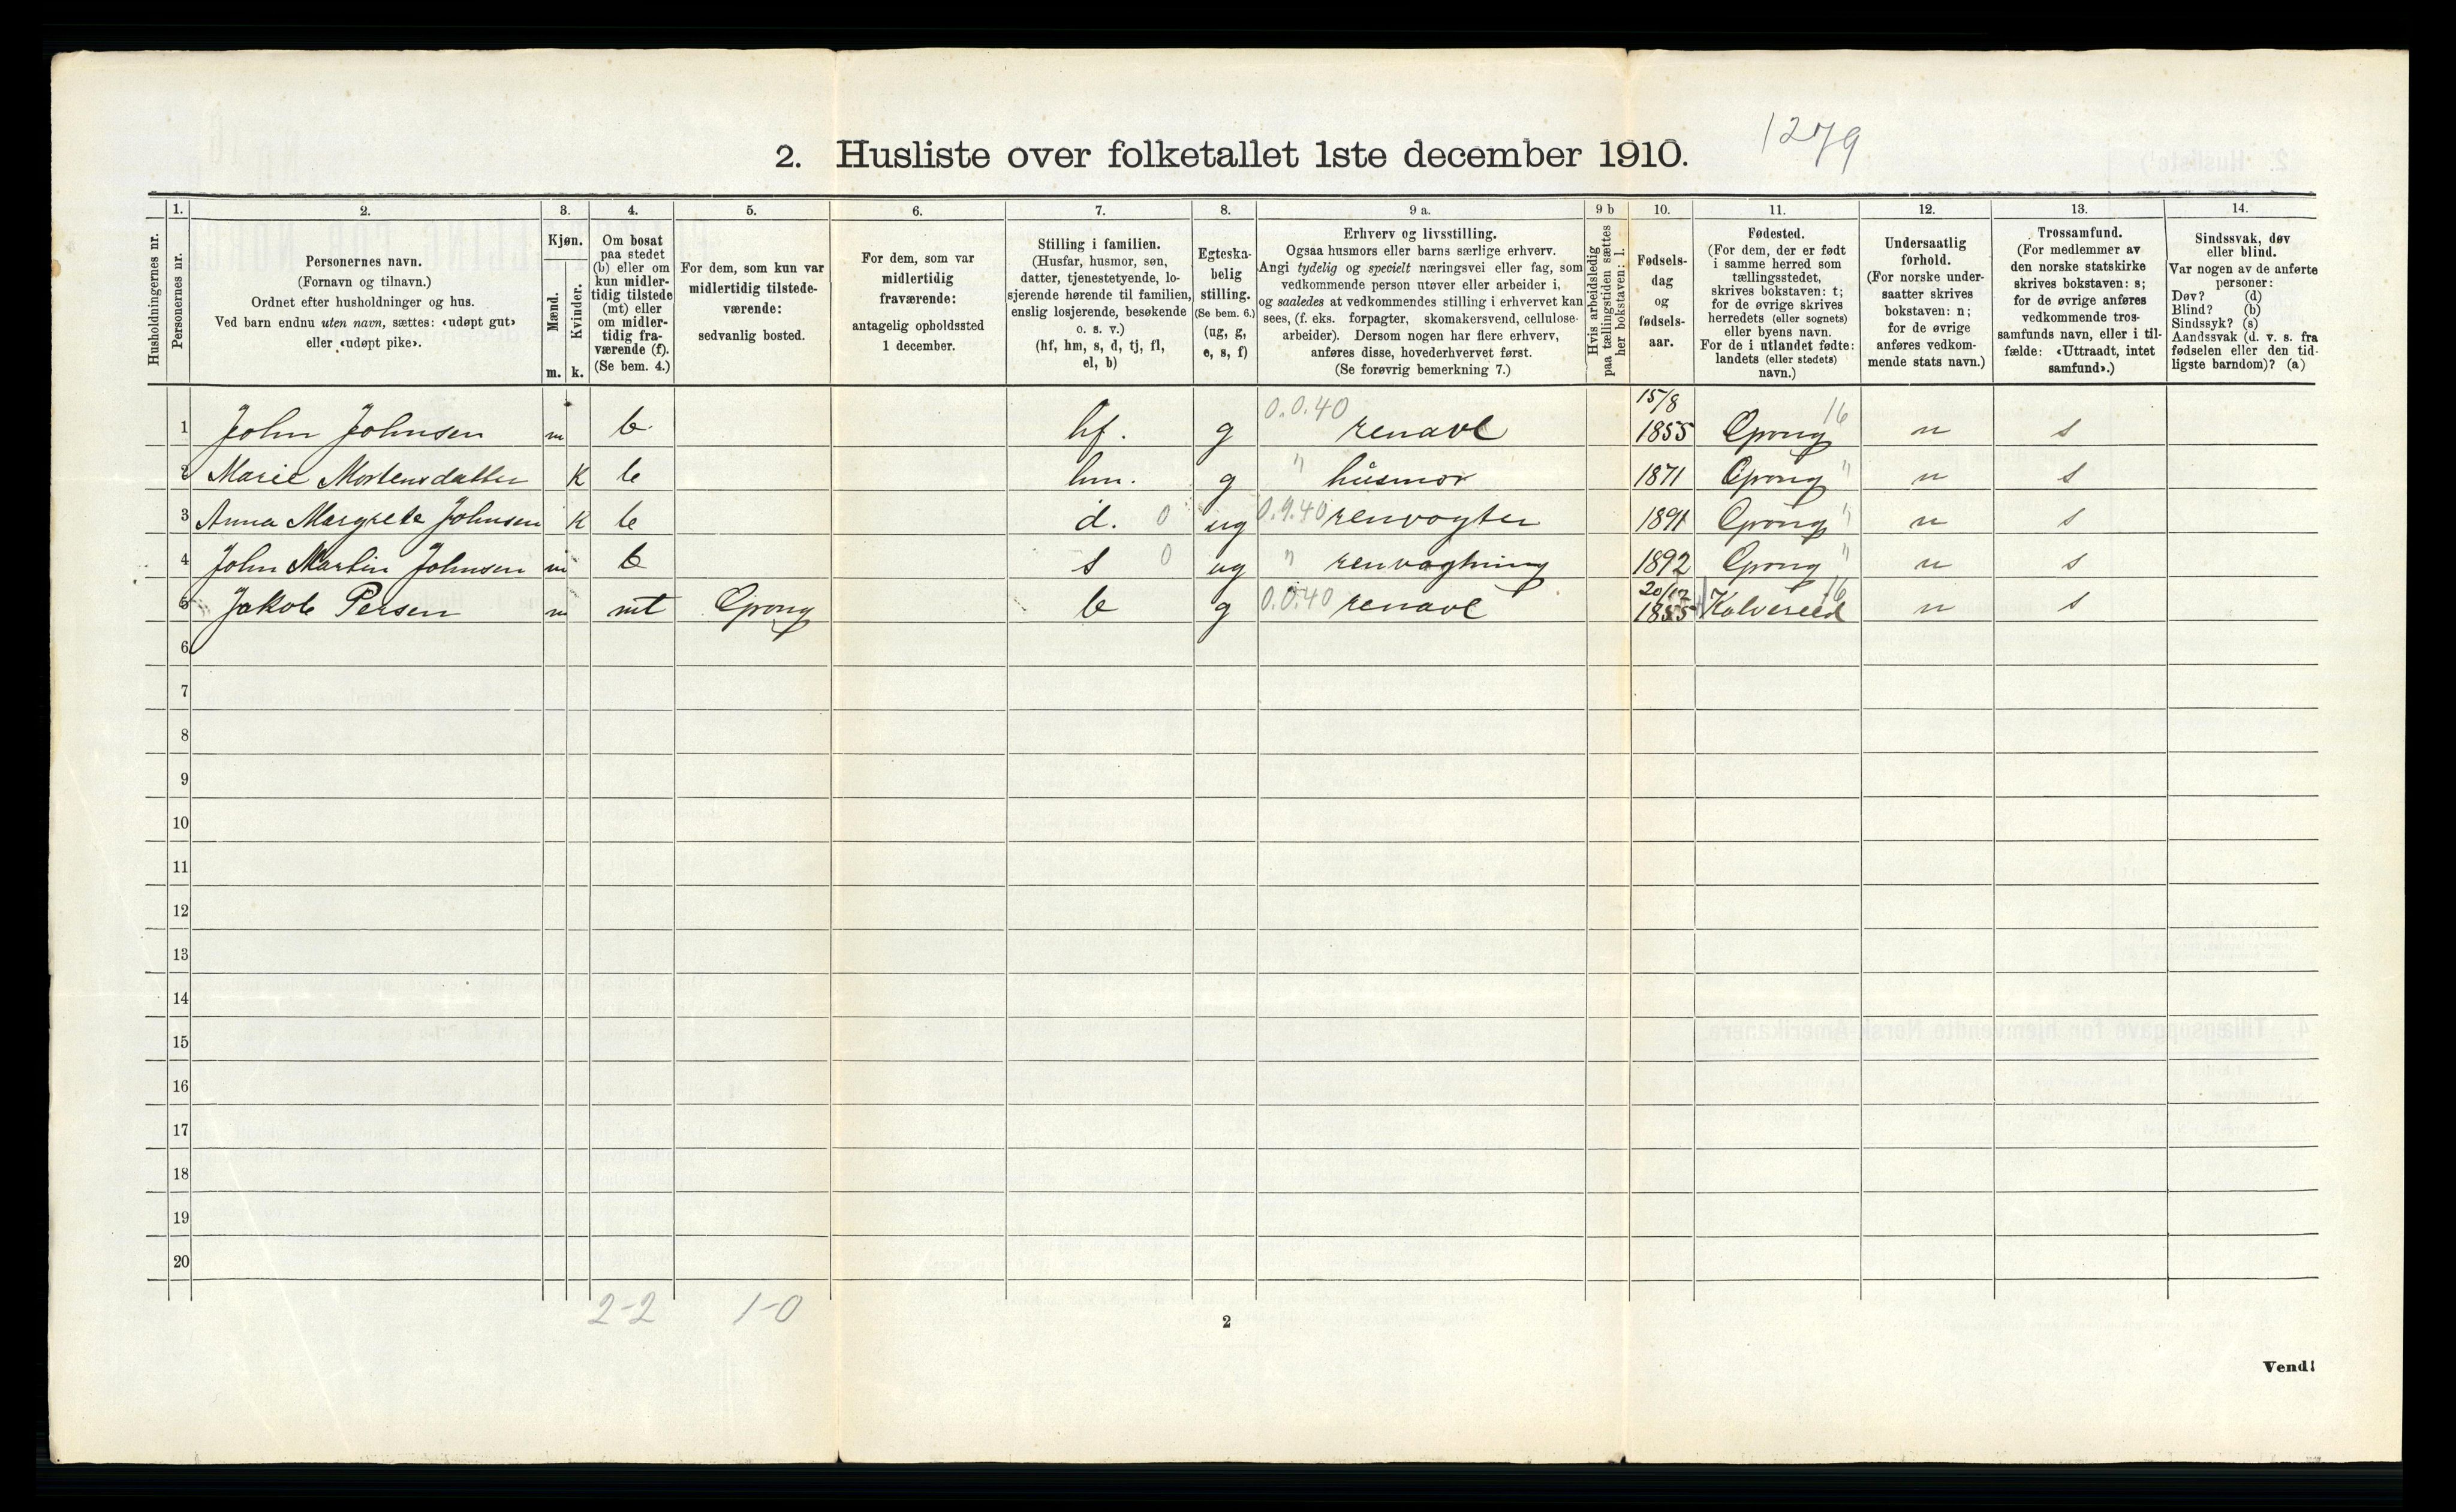 1279
2. Husliste over folketallet 1ste december 1910.
Husholdningernes nr.
1. Personernes nr.
2. Personernes navn.
(Fornavn og tilnavn.)
Ordnet efter husholdninger og hus.
Ved barn endnu uten navn, sættes: «udøpt gut»
eller «udøpt pike».
3. Kjøn.
Mænd. m.
Kvinder. k.
4. Om bosat
paa stedet
(b) eller om
kun midler-
tidig tilstede
(mt) eller
om midler-
tidig fra-
værende (f).
(Se bem. 4.)
5. For dem, som kun var
midlertidig tilstede-
værende:
sedvanlig bosted.
6. For dem, som var
midlertidig
fraværende:
antagelig opholdssted
1 december.
7. Stilling i familien.
(Husfar, husmor, søn,
datter, tjenestetyende, lo-
sjerende hørende til familien,
enslig losjerende, besøkende
o. s. v.)
(hf, hm, s, d, tj, fl,
el, b)
8. Egteska-
belig
stilling.
(Se bem. 6.)
(ug, g,
e, s, f)
9 a. Erhverv og livsstilling.
Ogsaa husmors eller barns særlige erhverv.
Angi tydelig og specielt næringsvei eller fag, som
vedkommende person utøver eller arbeider i,
og saaledes at vedkommendes stilling i erhvervet kan
sees, (f. eks. forpagter, skomakersvend, cellulose-
arbeider). Dersom nogen har flere erhverv,
anføres disse, hovederhvervet først.
(Se forøvrig bemerkning 7.)
9 b Hvis arbeidsledig
paa tællingstiden sættes
her bokstaven: l.
10. Fødsels-
dag
og
fødsels-
aar.
11. Fødested.
(For dem, der er født
i samme herred som
tællingsstedet,
skrives bokstaven: t;
for de øvrige skrives
herredets (eller sognets)
eller byens navn.
For de i utlandet fødte:
landets (eller stedets)
navn.)
12. Undersaatlig
forhold.
(For norske under-
saatter skrives
bokstaven: n;
for de øvrige
anføres vedkom-
mende stats navn.)
13. Trossamfund.
(For medlemmer av
den norske statskirke
skrives bokstaven: s;
for de øvrige anføres
vedkommende tros-
samfunds navn, eller i til-
fælde: «Uttraadt, intet
samfund».)
14. Sindssvak, døv
eller blind.
Var nogen av de anførte
personer:
Døv? (d)
Blind? (b)
Sindssyk? (s)
Aandssvak (d. v. s. fra
fødselen eller den tid-
ligste barndom)? (a)
1 John Johnsen m b hf. g 0.0.40 renavl 15/8 1855 Grong 16 n s
2 Marie Mortensdatter K b hm. g " husmor 1871 Grong " n s
3 Anna Margrete Johnsen K b d. 0 ug 0.9.40 renvogter 1891 Grong " n s
4 John Martin Johnsen m b s 0 ug " renvogtning 1892 Grong " n s
5 Jakob Persen m mt Grong b g 0.0.40 renavl 20/12 1855 Kolvereid 16 n s
6
7
8
9
10
11
12
13
14
15
16
17
18
19
20
2-2 1-0
2
Vend!